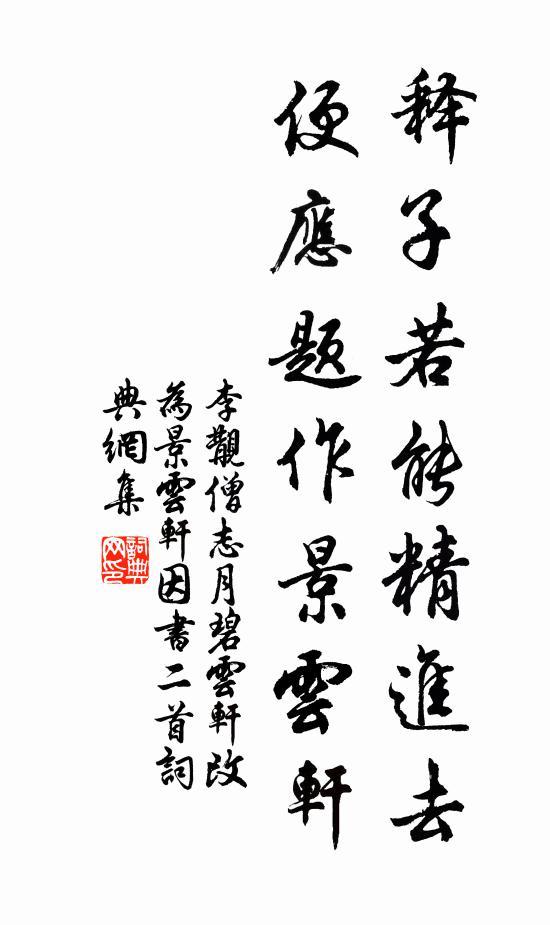 释子若能精進去
便應题作景雲軒
李覯僧志月碧雲軒改
為景雲軒因書二首詞
典網集
詞典网印